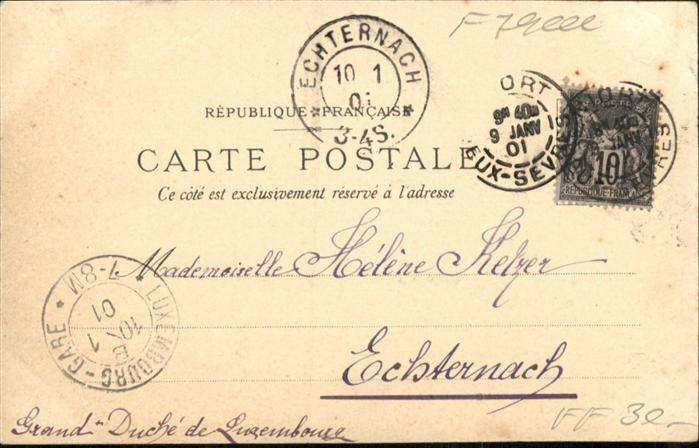 F 79
ECHTERNACH
10 1
01
3-4S.
RÉPUBLIQUE FRANÇAISE
CARTE POSTALE
Ce côté est exclusivement réservé à l'adresse
ORT
9 JANV
01
EUX-SÈVRES
10
RÉPUBLIQUE FRANÇAISE
Mademoiselle Hélène Kelzer
LUXEMBOURG-GARE
7-8M
10 1
01
B
Echternach
Grand Duché de Luxembourg
FF 30-